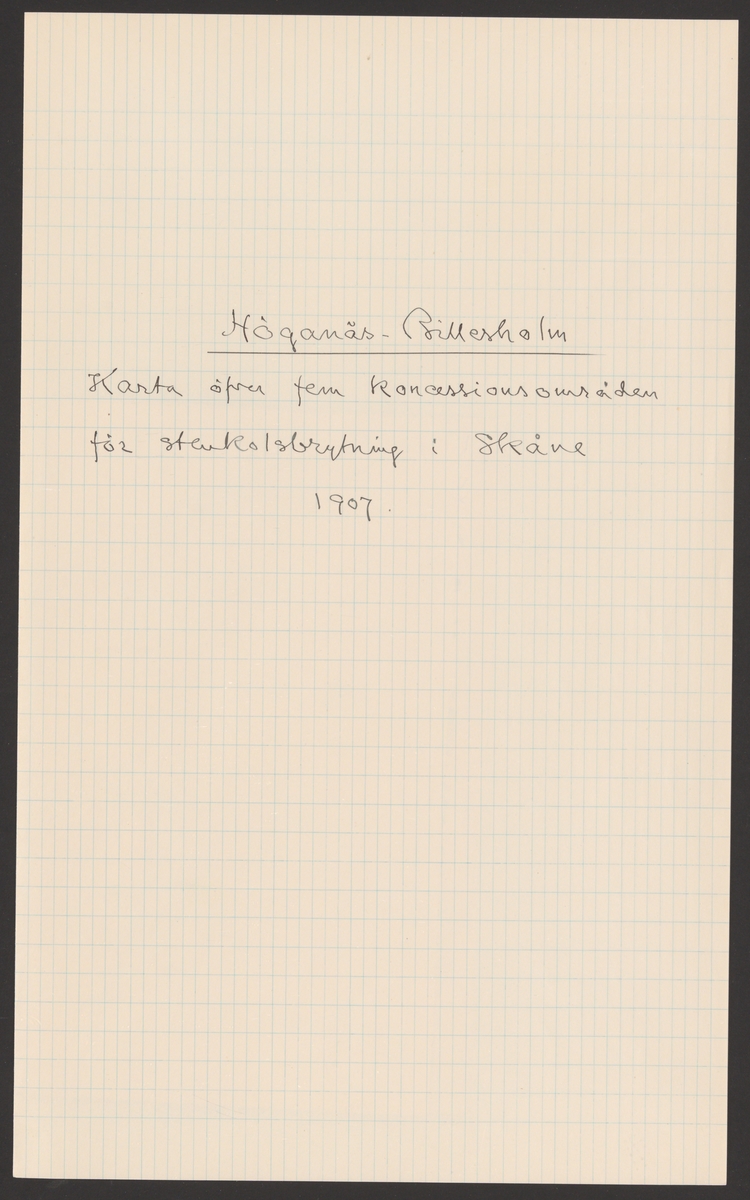 Höganäs-Billesholm
Karta öfver fem koncessionsområden
för stenkolsbrytning i Skåne
1907.